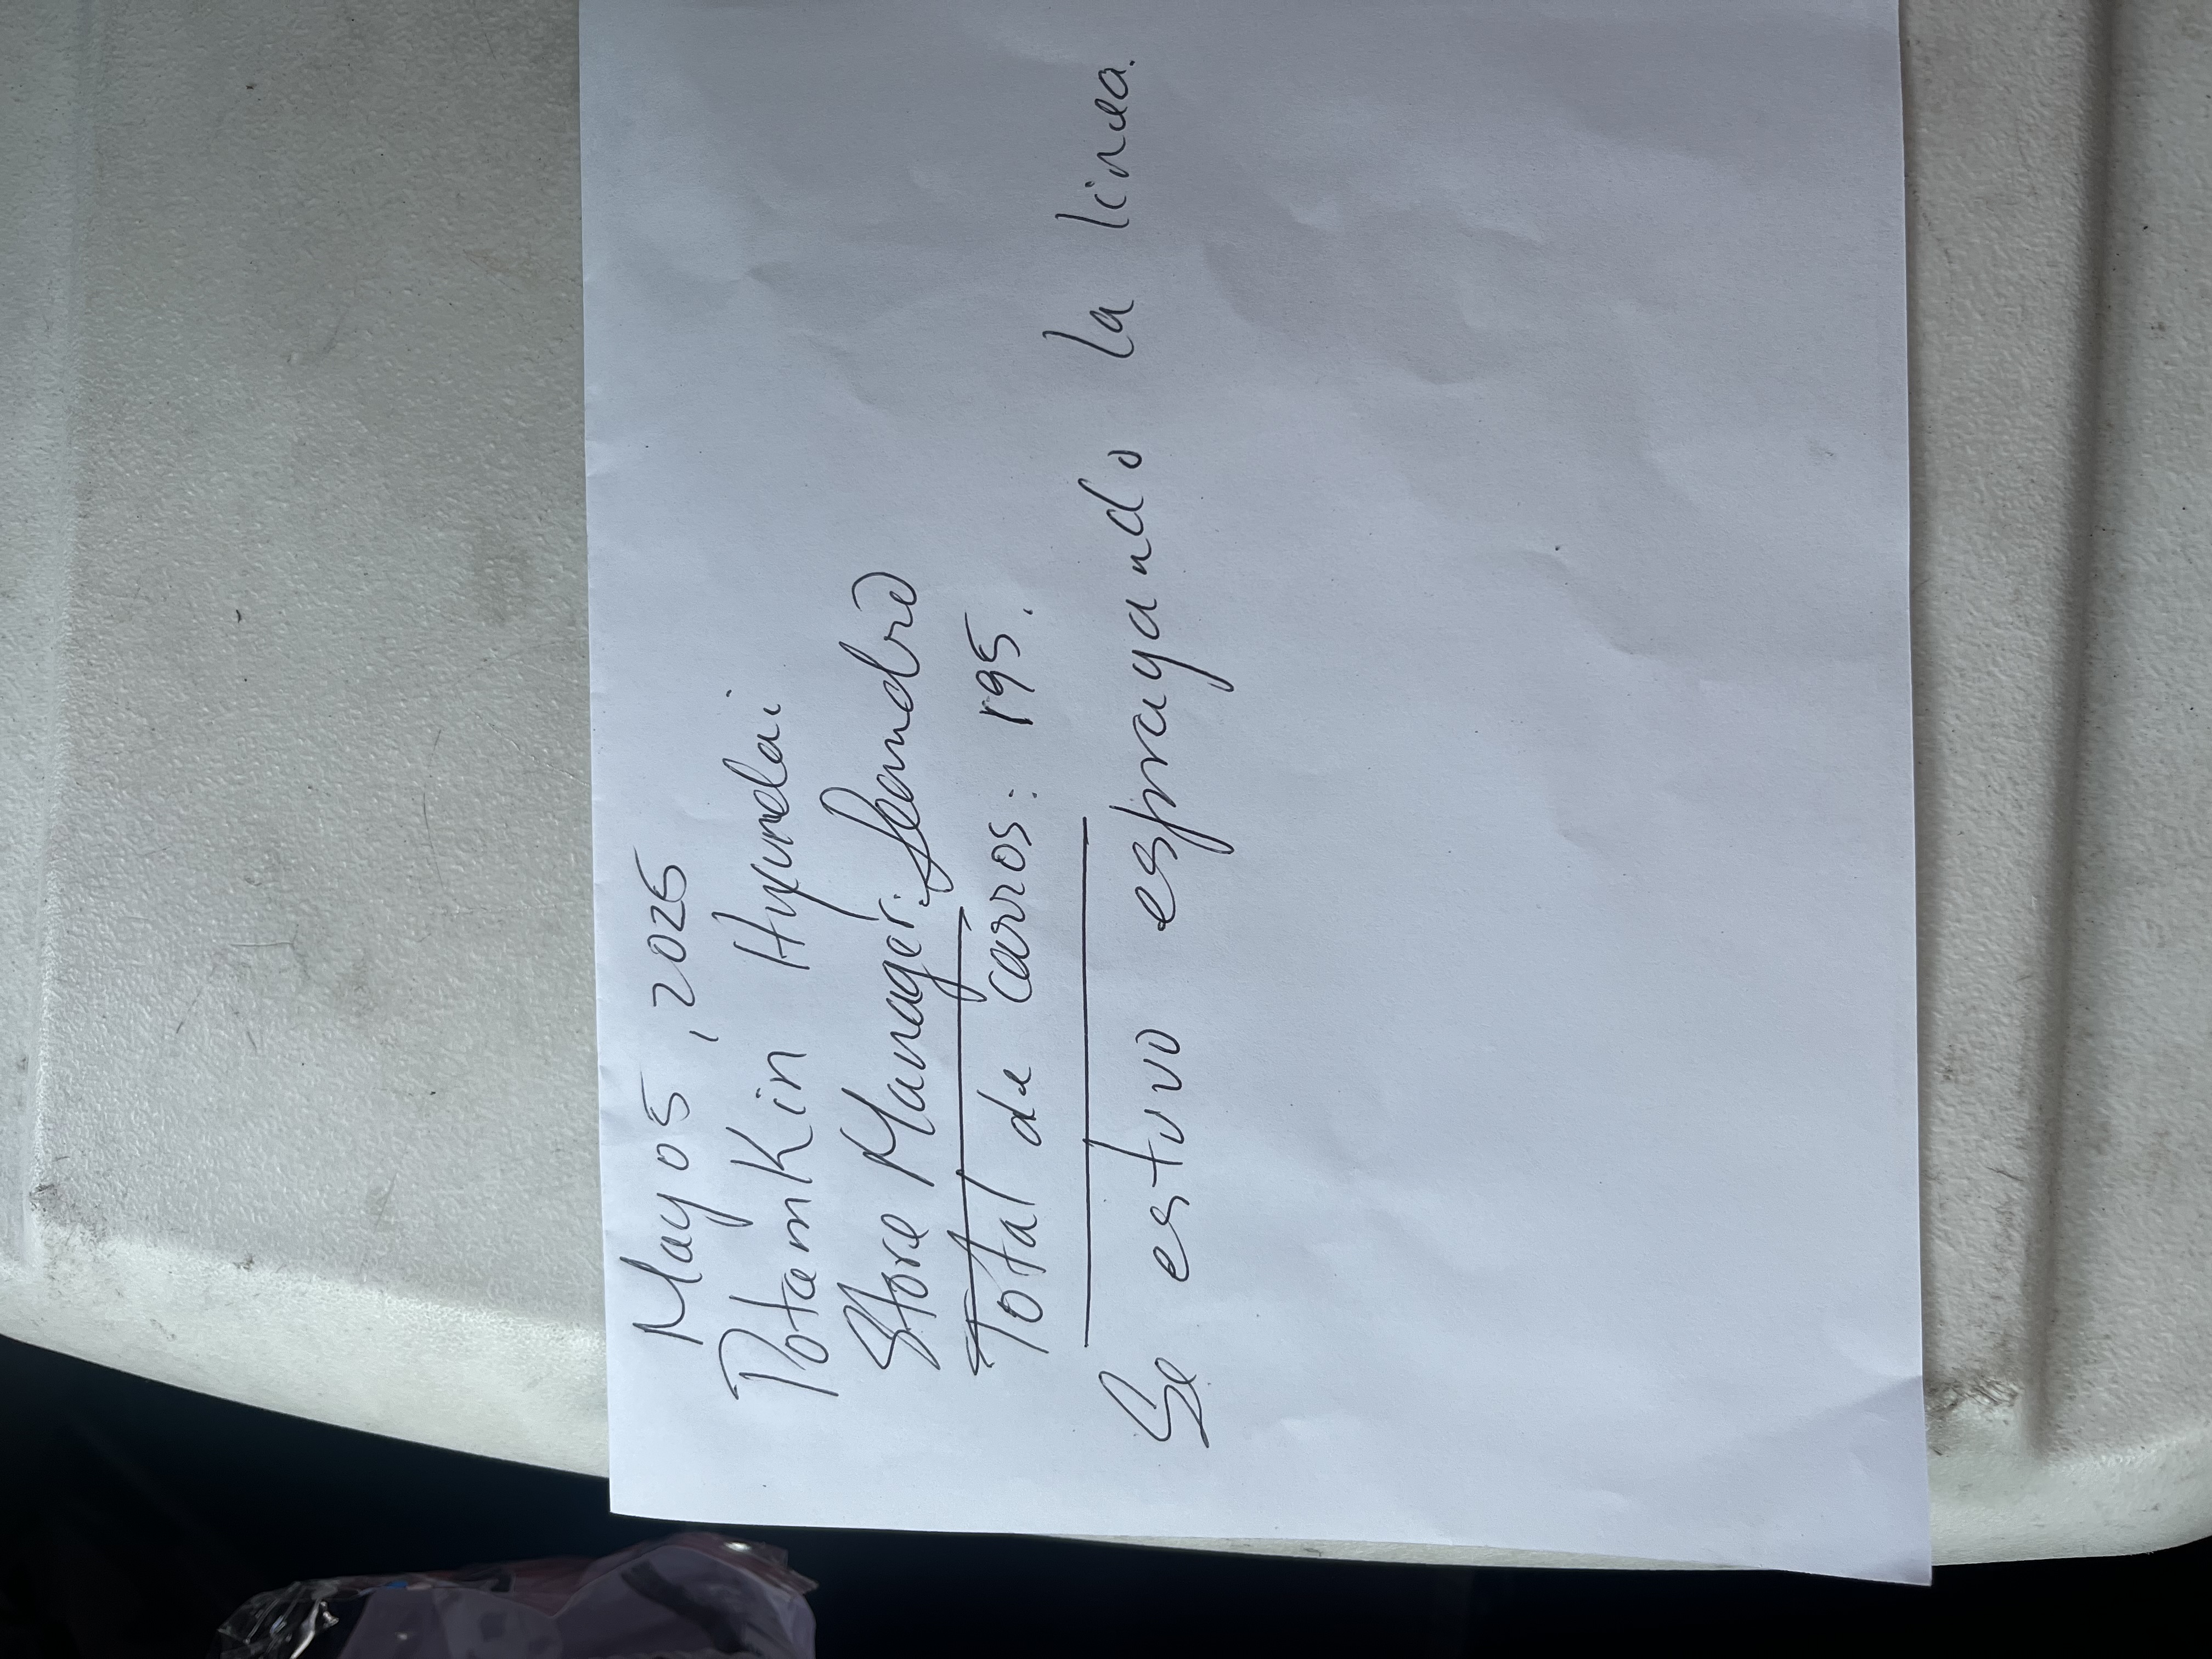 May 05, 2025
Potamkin Hyundai
Store Manager: Leandro
Total de carros: 195.
Se estuvo esprayando la linea.